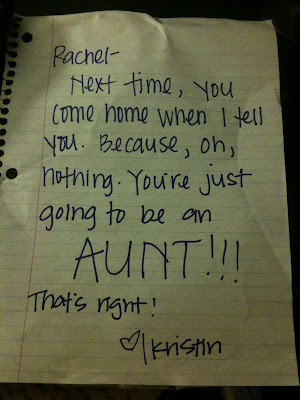 Rachel-
Next time, you
come home when I tell
you. Because, oh,
nothing. You're just
going to be an
AUNT!!!
That's right!
♡/kristin